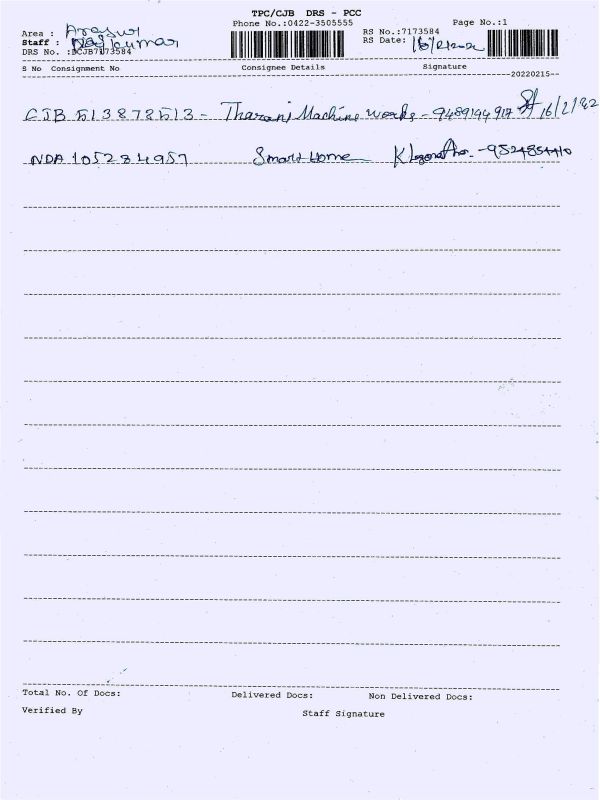 TPC/CJB DRS - PCC
Phone No.:0422-3505555
Page No.:1
Area : Arasur
RS No.:7173584
Staff : Rajkumar
RS Date: 16/2/2022
DRS No. :BCJB7173584
S No Consignment No Consignee Details Signature
20220215
CJB 513878513 - Tharani Machine Works - 9489194917 16/2/22
NDA 105284957 Smart Home - 9524854410
Total No. Of Docs: Delivered Docs: Non Delivered Docs:
Verified By Staff Signature